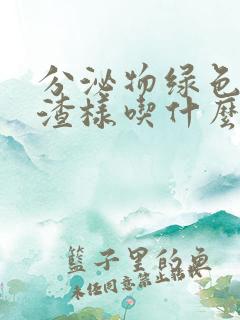 分泌物绿色
渣様喫什麼
籃子里的魚
未经同意禁止转载